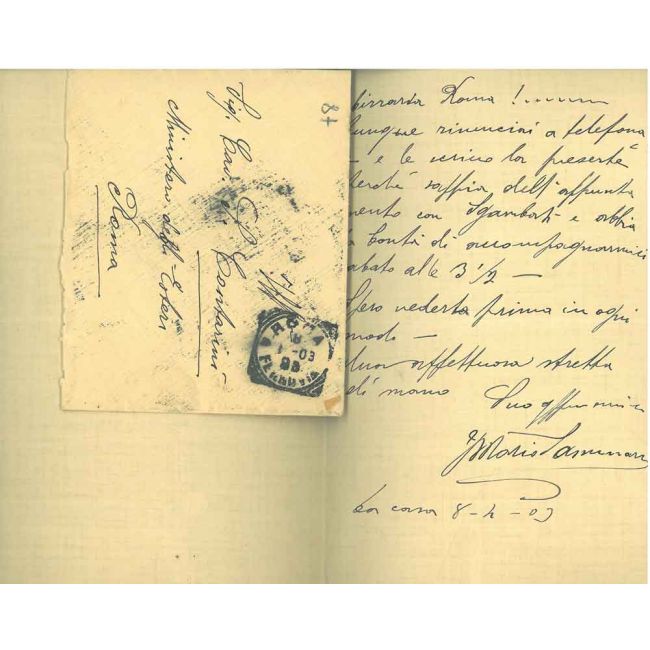 87
Sig. Cav. Contarini
Ministero degli Esteri
Roma
ROMA
FERROVIA
birraria Roma !
unque rinunciai a telefona
— e le scrivo la presente
perchè sappia dell'appunta
mento con Sgambati e abbia
a bontà di accompagnarmici
abato alle 3 1/2 —
Spero vederla prima in ogni
modo —
una affettuosa stretta
di mano
Suo
Mario
Da casa 8 - 03